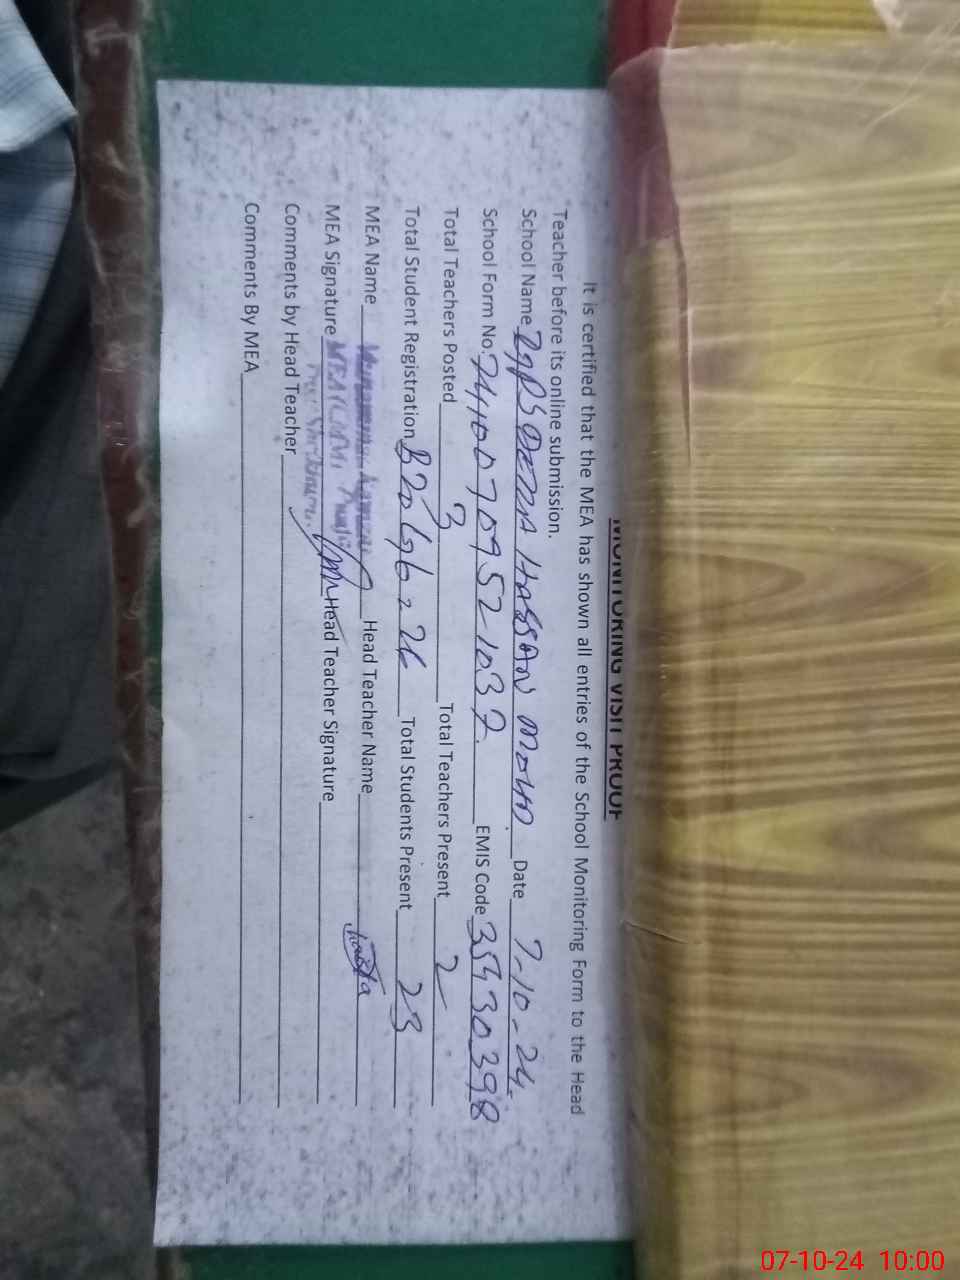 MONITORING VISIT PROOF
It is certified that the MEA has shown all entries of the School Monitoring Form to the Head
Teacher before its online submission.
School Name GGPS DERA HASSAN Date 7-10-24
School Form No. 74100709521037 EMIS Code 35430398
Total Teachers Posted 3 Total Teachers Present 2
Total Student Registration B20 G6=26 Total Students Present 23
MEA Name Head Teacher Name
MEA Signature Head Teacher Signature
Comments by Head Teacher
Comments By MEA
07-10-24 10:00